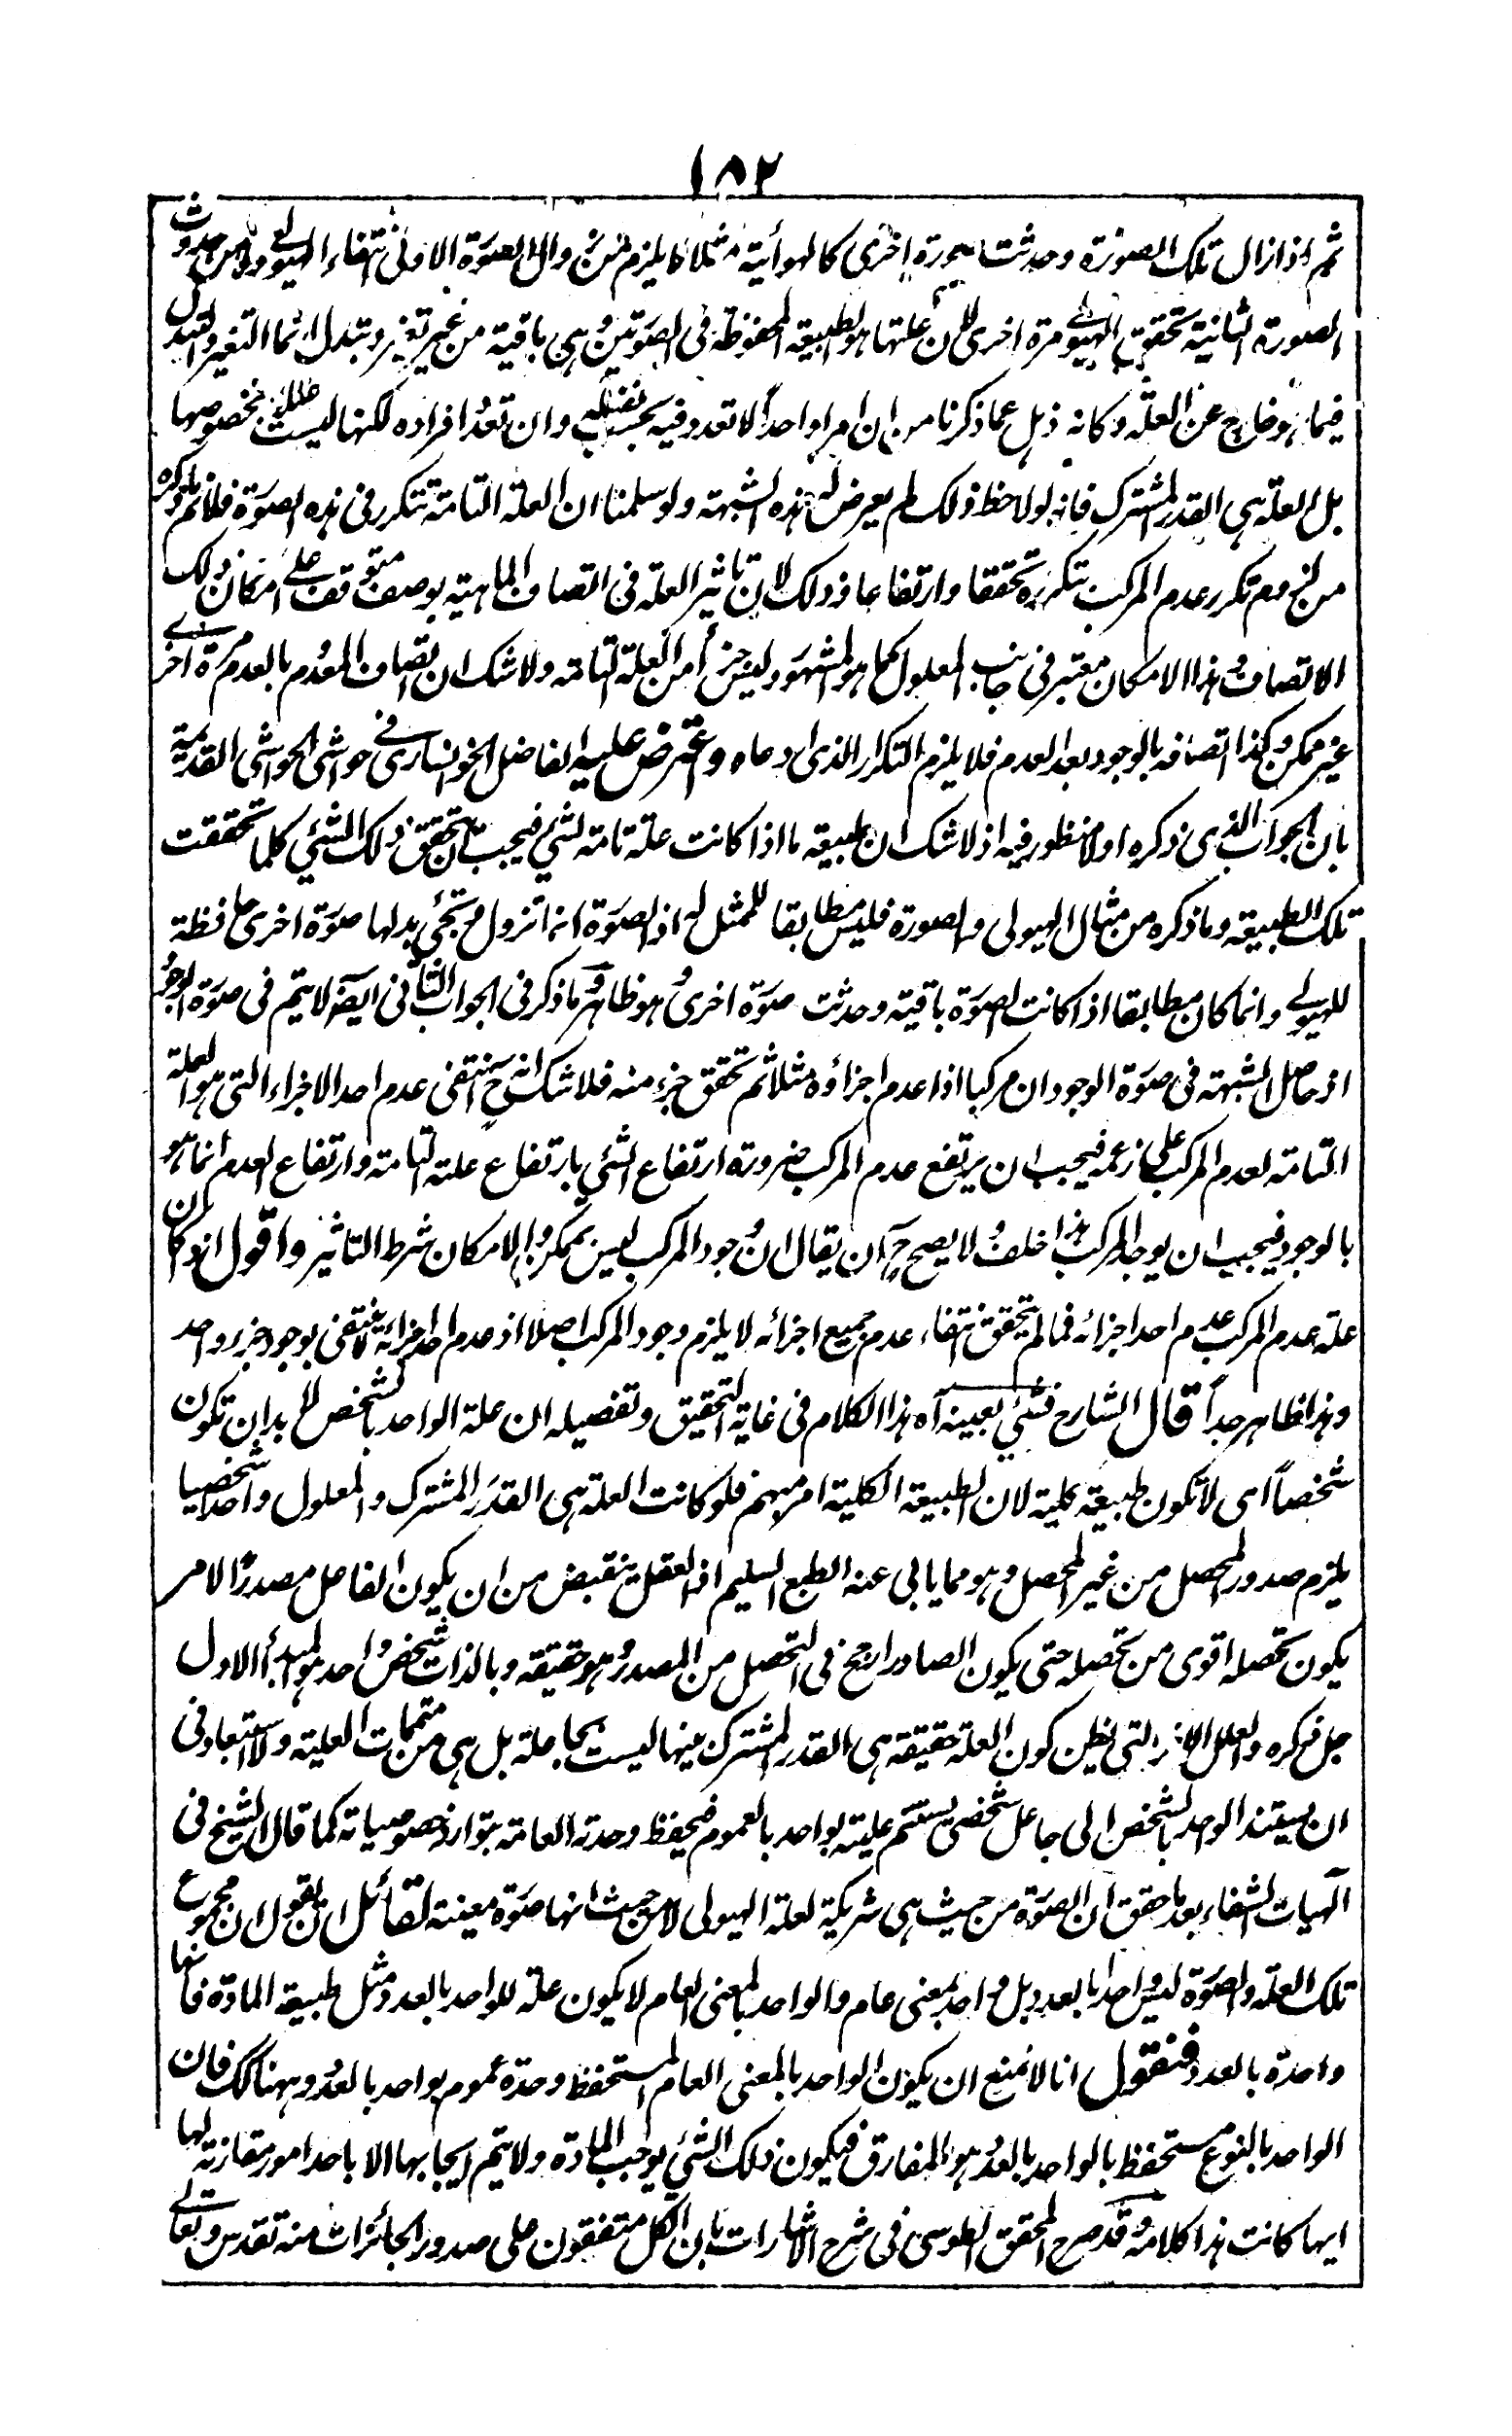 ١٥٢
ثم اذا زال تلك الصورة وحدثت صورة اخرى كالهوائية مثلا فلا يلزم من زوال الصورة الاولى انتفاء الهيولى ولا من حدوث
الصورة الثانية تحقق الهيولى مرة اخرى لان علتها هو الطبيعة المحفوظة في الصورتين وهي باقية من غير تغير وتبدل انما التغير والتبدل
فيما هو خارج عن العلة وكانه ذهل عما ذكرنا من ان امرا واحدا لا تعدد فيه بحسب نفسه وان تعدد افراده لكنها ليست عللا بخصوصها
بل العلة هي القدر المشترك فانه لو لاحظ ذلك لم يعرض له هذه الشبهة ولو سلمنا ان العلة التامة تتكرر في هذه الصورة فلا نم ما ذكره
من لزوم تكرر عدم المركب بتكرره تحققا وارتفاعا وذلك لان تاثير العلة في اتصاف الماهية بوصف متوقف على امكان ذلك
الاتصاف وهذا الامكان معتبر في جانب المعلول كما هو المشهور وليس جزأ من العلة التامة ولا شك ان اتصاف المعدم بالعدم مرة اخرى
غير ممكن وكذا اتصافه بالوجود بعد العدم فلا يلزم التكرار الذى ادعاه واعترض عليه الفاضل الخوانسارى في حواشى الحواشى القديمة
بان الجواب الذى ذكره اولا منظور فيه اذ لا شك ان طبيعة ما اذا كانت علة تامة لشئ فيجب ان تحقق ذلك الشئ كلما تحققت
تلك الطبيعة وما ذكره من مثال الهيولى والصورة فليس مطابقا للممثل له اذ الصورة انما تزول وتجئ بدلها صورة اخرى حافظة
للهيولى وانما كان مطابقا اذا كانت الصورة باقية وحدثت صورة اخرى وهو ظاهر وما ذكر في الجواب الثانى ايضا لا يتم في صورة الوجود
اذ حاصل الشبهة في صورة الوجود ان مركبا اذا عدم اجزاؤه مثلا ثم تحقق جزء منه فلا شك انه ح ينتفى عدم احد الاجزاء التى هو العلة
التامة لعدم المركب على زعمه فيجب ان يرتفع عدم المركب ضرورة ارتفاع الشئ بارتفاع علته التامة وارتفاع العدم انما هو
بالوجود فيجب ان يوجد المركب هذا خلف ولا يصح ح ان يقال ان وجود المركب ليس بممكن والامكان شرط التاثير واقول اذ كان
علة عدم المركب عدم احد اجزائه فما لم يتحقق انتفاء عدم جميع اجزائه لا يلزم وجود المركب اصلا اذ عدم احد اجزائه لا ينتفى بوجود جزء واحد
وهذا ظاهر جداً قال الشارح فشئ بعينه آه هذا الكلام في غاية التحقيق وتفصيله ان علة الواحد بالشخص لا بد ان تكون
شخصاً اى لا تكون طبيعة كلية لان الطبيعة الكلية امر مبهم فلو كانت العلة هي القدر المشترك والمعلول واحدا شخصيا
يلزم صدور المحصل من غير المحصل وهو مما يابى عنه الطبع السليم اذ العقل ينقبض من ان يكون الفاعل مصدرا لامر
يكون تحصله اقوى من تحصله حتى يكون الصادر ارجح في التحصل من المصدر وهو حقيقة وبالذات شخص واحد هو المبدأ الاول
جل ذكره والعلل الاخر التى يظن كون العلة حقيقة هي القدر المشترك منها ليست بجاعلة بل هي من متممات العلية ولا استبعاد في
ان يستند الواحد بالشخص الى جاعل شخصى يستتم عليته بواحد بالعموم فيحفظ وحدته العامة بتوارد خصوصياته كما قال الشيخ في
الهيات الشفاء بعد ما حقق ان الصورة من حيث هي شريكة لعلة الهيولى لا من حيث انها صورة معينة لقائل ان يقول ان مجموع
تلك العلة والصورة ليس واحدا بالعدد بل واحد بمعنى عام والواحد بالمعنى العام لا يكون علة للواحد بالعدد مثل طبيعة المادة فانها
واحدة بالعدد فنقول انا لا نمنع ان يكون الواحد بالمعنى العام المستحفظ وحدة عمومه بواحد بالعدد وههنا كك فان
الواحد بالنوع مستحفظ بالواحد بالعدد هو المفارق فيكون ذلك الشئ يوجب المادة ولا يتم ايجابها الا باحد امور مقارنة لها
ايها كانت هذا كلامه وقد صرح المحقق الطوسى في شرح الاشارات بان الكل متفقون على صدور الجائزات منه تقدس وتعالى